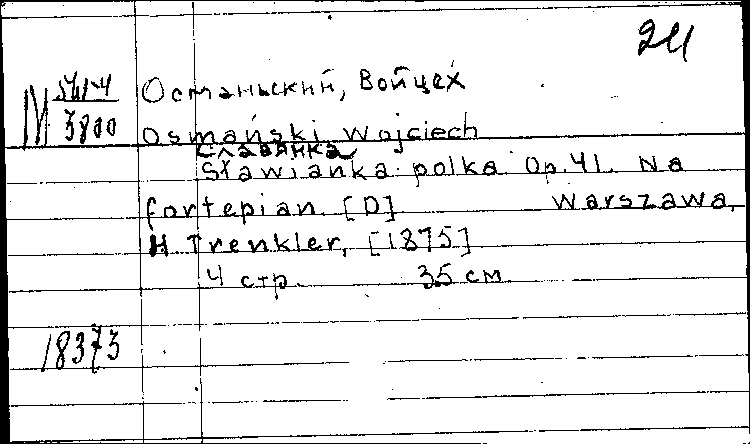 24
M 541-4
3800
Османьский, Войцех
Osmański Wojciech
Славянка
Sławianka polka Op.41. Na
fortepian. [D] Warszawa,
H Trenkler, [1875]
4 стр. 35 см
18373